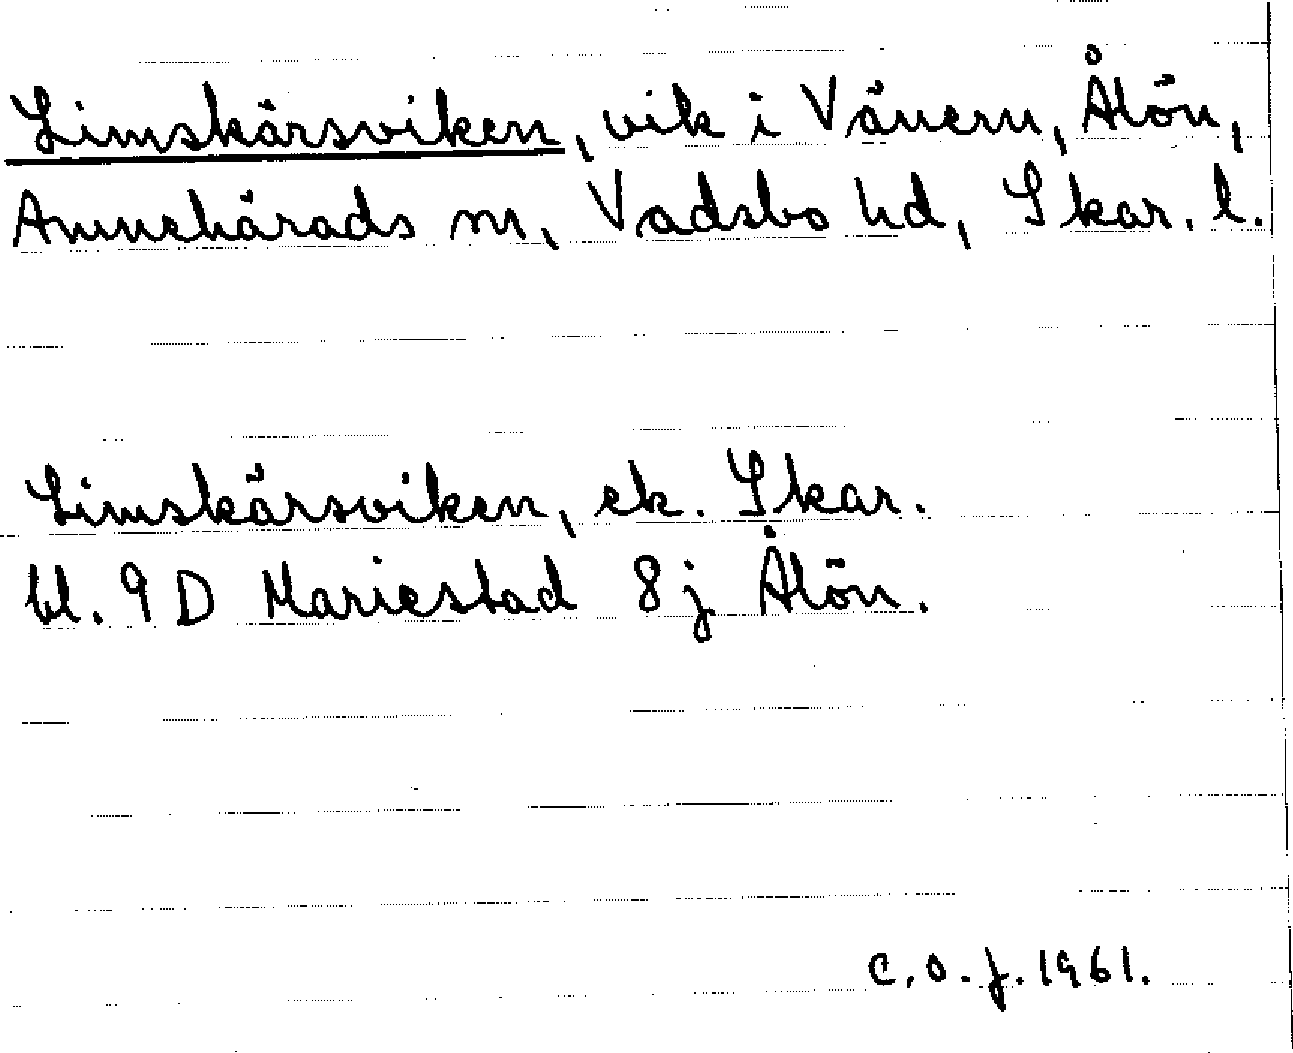 Limskärsviken, vik i Vänern, Ålön,
Amnehärads sn, Vadsbo hd, Skar. l.
Limskärsviken, ek. Skar.
bl. 9 D Mariestad 8 j Ålön.
C.O.J. 1961.